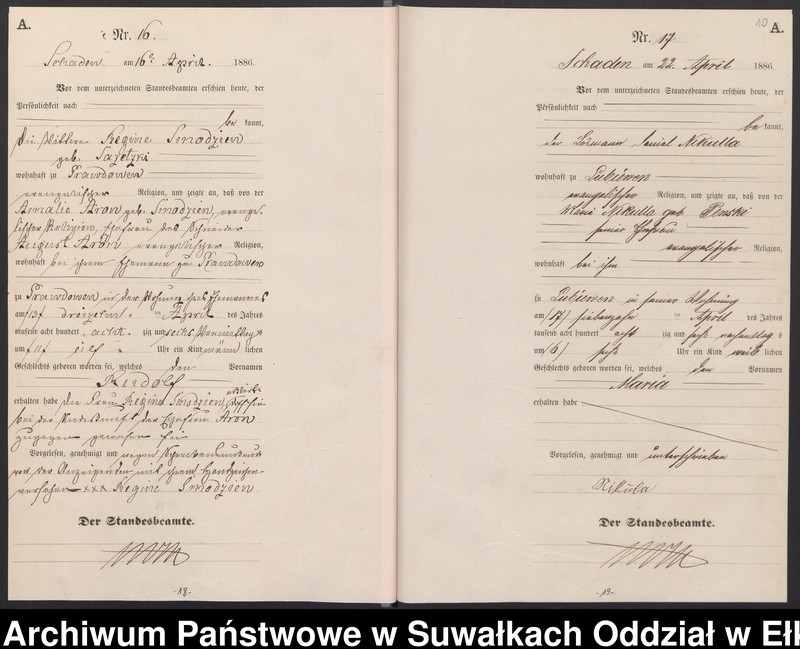 A.
Nr. 16.
Schaden am 16. April. 1886.
Vor dem unterzeichneten Standesbeamten erschien heute, der
Persönlichkeit nach
be kannt,
die Wittwe Regine Smodzien
geb. Sazetzki
wohnhaft zu Prawdowen
evangelischer Religion, und zeigte an, daß von der
Amalie Aron geb. Smodzien, evange-
lischer Religion, Ehefrau des Schneider
August Aron evangelischer Religion,
wohnhaft bei ihrem Ehemann zu Prawdowen
zu Prawdowen in der Wohnung ihres Ehemannes
am 13 dreizehn April des Jahres
tausend acht hundert acht zig und sechs Vormittag s
um 11 eilf Uhr ein Kind männ lichen
Geschlechts geboren worden sei, welches den Vornamen
Rudolf
erhalten habe die Frau Regine Smodzien
bei der Niederkunft der Ehefrau Aron
zugegen gewesen sei
Vorgelesen, genehmigt und wegen Schreibensunkunde
von der Anzeigenden mit ihrem Handzeichen
versehen xxx Regine Smodzien
Der Standesbeamte.
-18-
10
A.
Nr. 17
Schaden am 22. April 1886.
Vor dem unterzeichneten Standesbeamten erschien heute, der
Persönlichkeit nach
be kannt,
der Losmann Nikulla
wohnhaft zu Lubiewen
evangelischer Religion, und zeigte an, daß von der
Marie Nikulla geb Penski
seiner Ehefrau
evangelischer Religion,
wohnhaft bei ihm
zu Lubiewen in seiner Wohnung
am 17 siebenzehn April des Jahres
tausend acht hundert acht zig und sechs nachmittag s
um 6 sechs Uhr ein Kind weib lichen
Geschlechts geboren worden sei, welches den Vornamen
Maria
erhalten habe
Vorgelesen, genehmigt und unterschrieben
Nikula
Der Standesbeamte.
-19-
Archiwum Państwowe w Suwałkach Oddział w Ełk